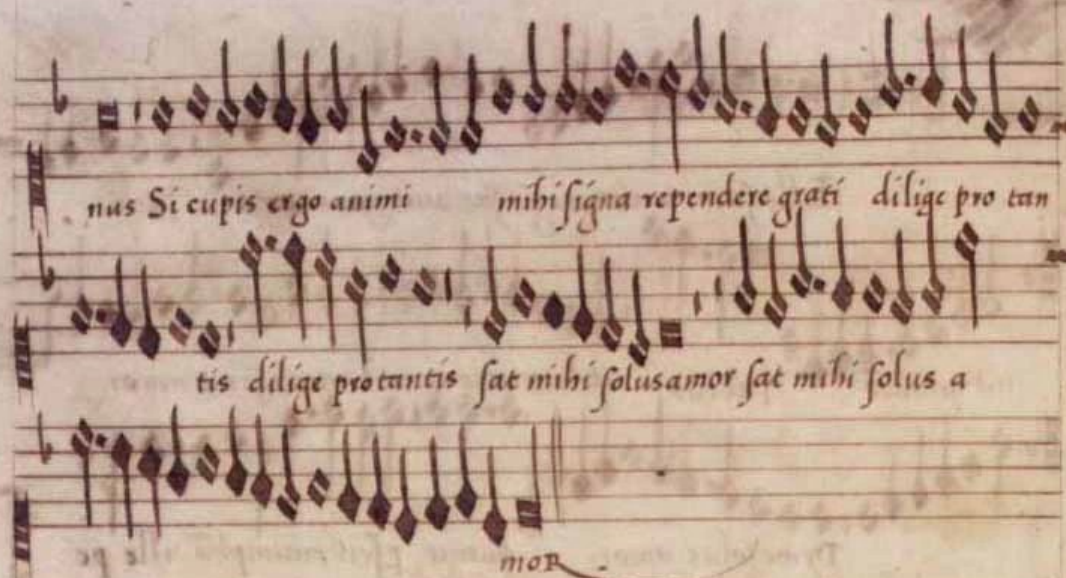 nus Si cupis ergo animi mihi signa rependere grati dilige pro tan
tis dilige pro tantis sat mihi solus amor sat mihi solus a
mor